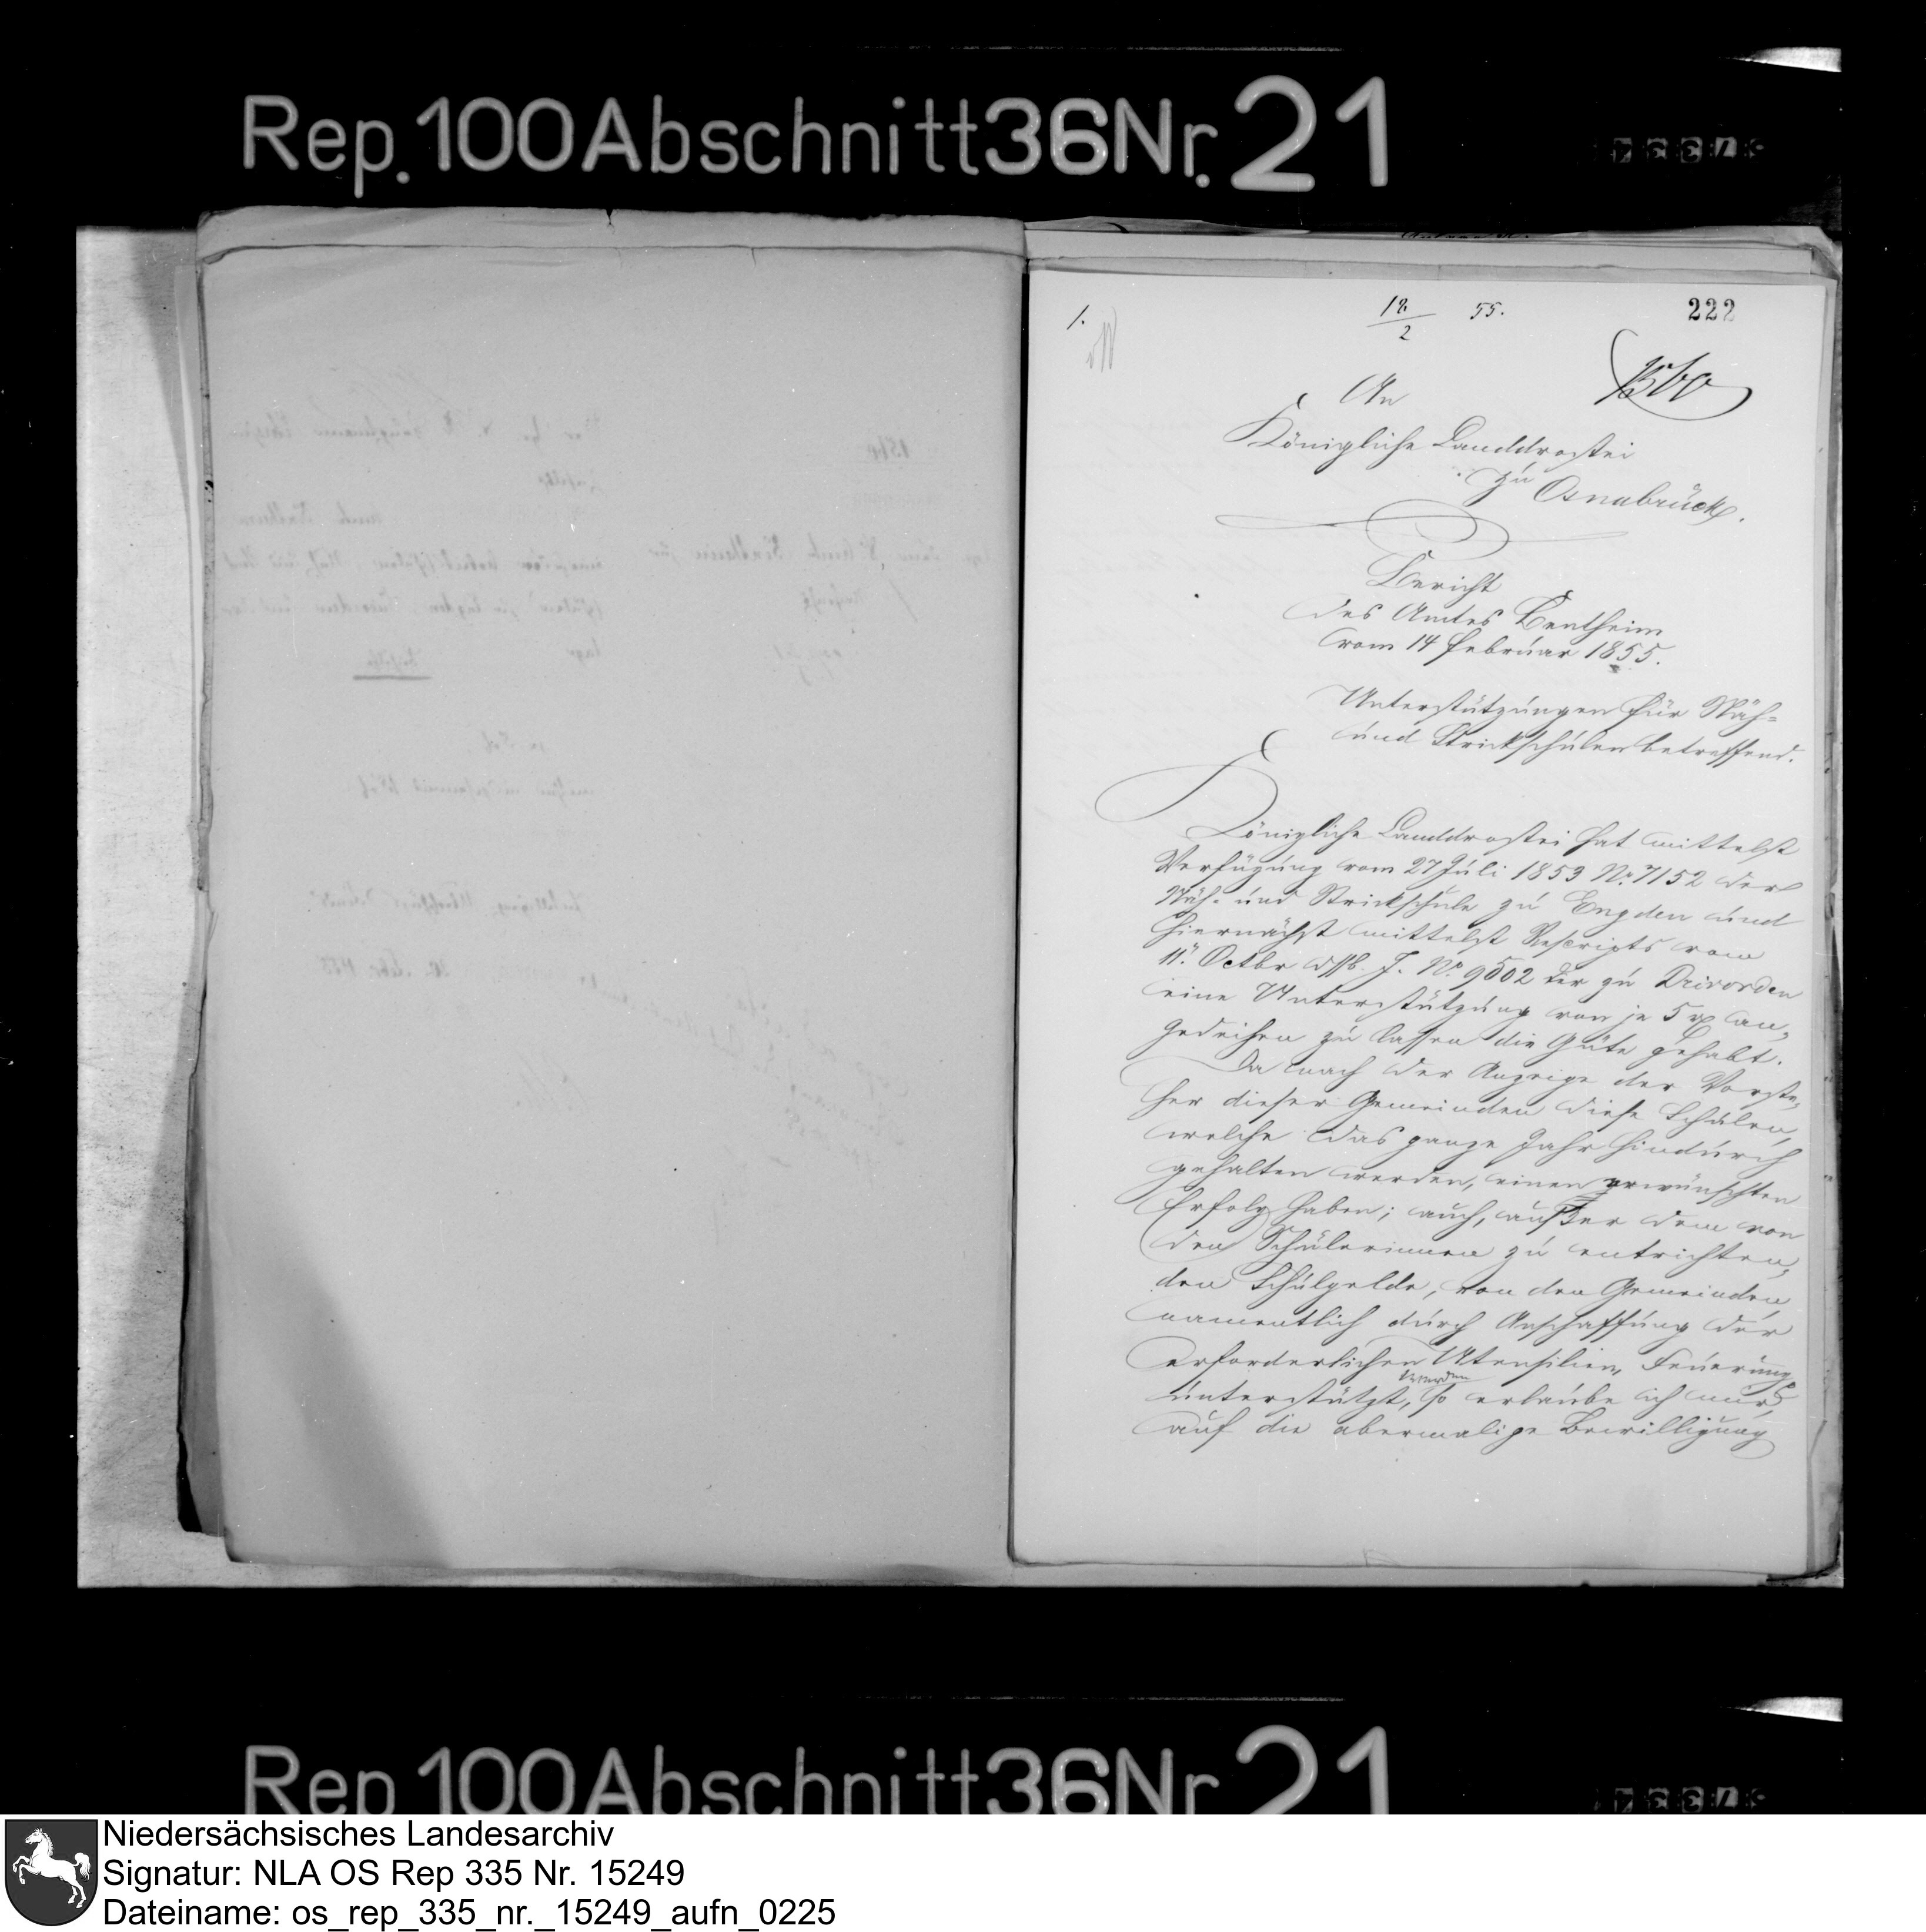 Rep. 100 Abschnitt 36 Nr. 21
1.
18/2 55.
222
An
Königliche Landdrostei
zu Osnabrück.
Bericht
des Amtes Bentheim
vom 14 Februar 1855.
Unterstützungen für Näh-
und Strickschulen betreffend.
Königliche Landdrostei hat mittelst
Verfügung vom 27 Juli 1853 No. 7152 der
Näh- und Strickschule zu Engden und
hiernächst mittelst Rescripts vom
11. Octbr dss. J. No. 9502 der zu Drivorden
eine Unterstützung von je 5 an-
gedeihen zu lassen die Güte gehabt.
Da nach der Anzeige der Vorste-
her dieser Gemeinden diese Schulen,
welche das ganze Jahr hindurch
gehalten werden, einen erwünschten
Erfolg haben; auch, außer dem von
den Schülerinnen zu entrichten-
den Schulgelde, von den Gemeinden
namentlich durch Anschaffung der
erforderlichen Utensilien, Feuerung
unterstützt werden, so erlaube ich mir,
auf die abermalige Bewilligung
Rep 100 Abschnitt 36 Nr 21
Niedersächsisches Landesarchiv
Signatur: NLA OS Rep 335 Nr. 15249
Dateiname: os_rep_335_nr._15249_aufn_0225